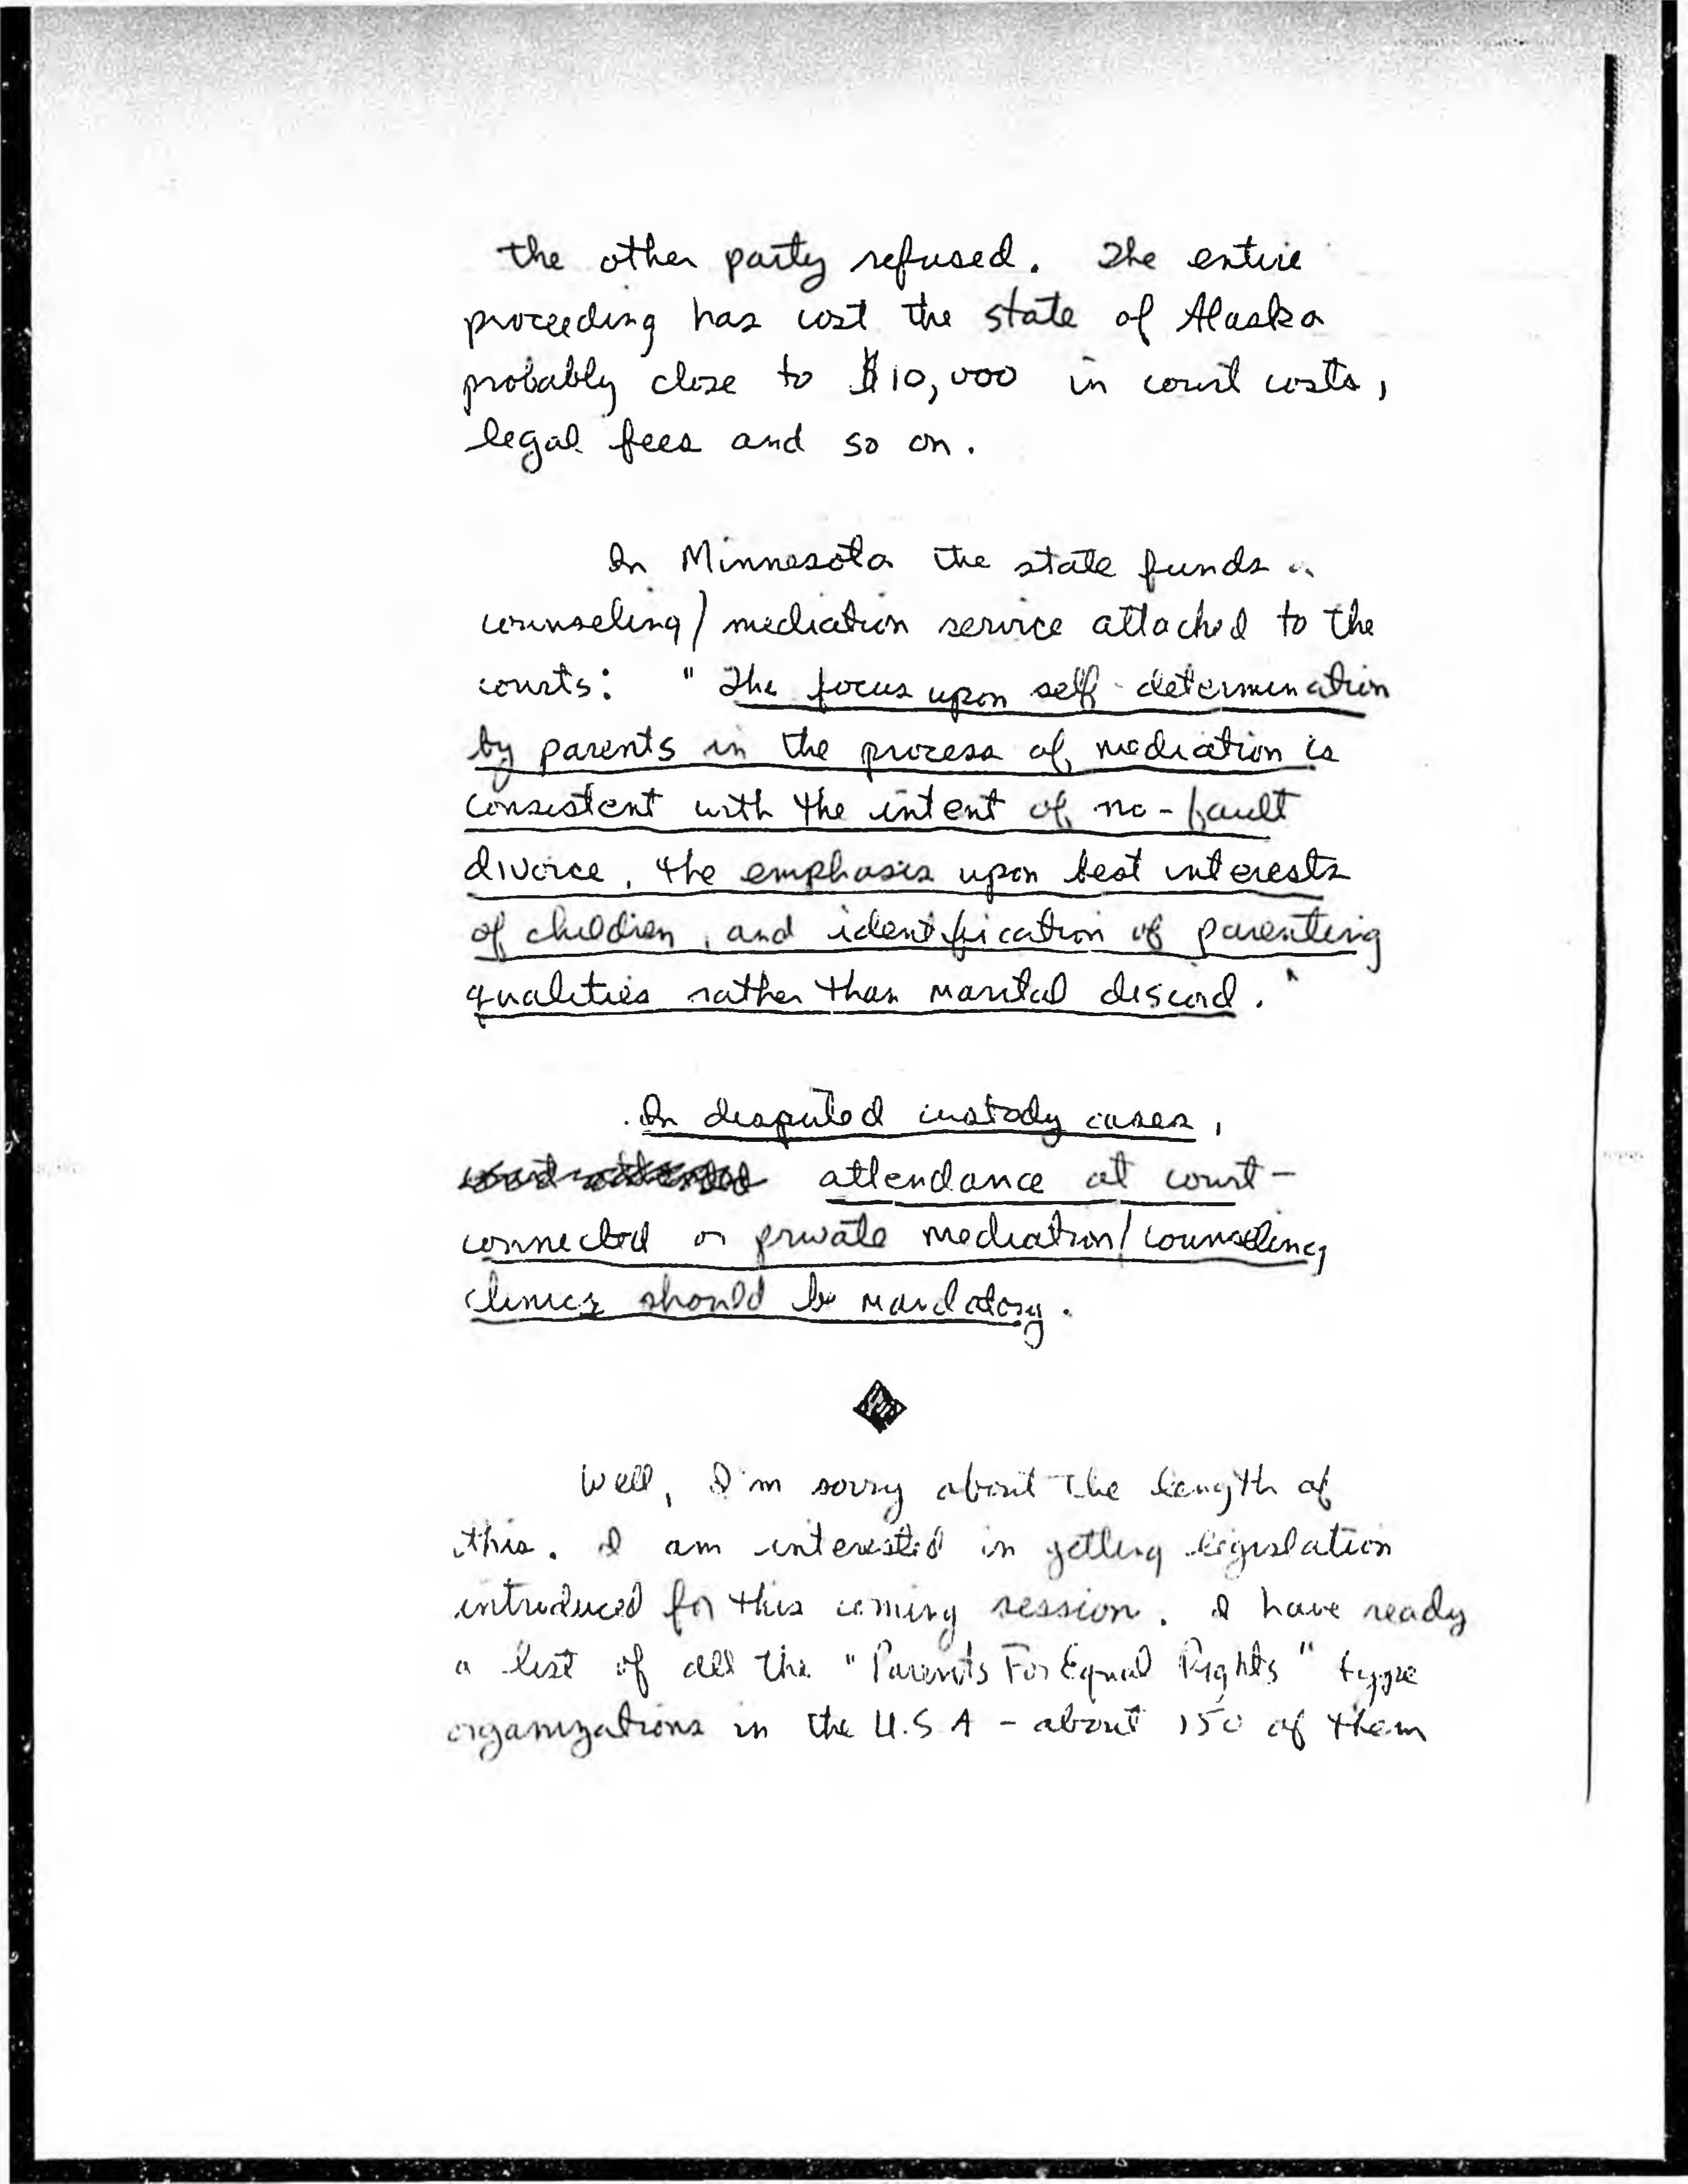 the other party refused. The entire
proceeding has cost the state of Alaska
probably close to $10,000 in court costs,
legal fees and so on.
In Minnesota the state funds a
counseling/mediation service attached to the
courts: "The focus upon self-determination
by parents in the process of mediation is
consistent with the intent of no-fault
divorce, the emphasis upon best interests
of children, and identification of parenting
qualities rather than marital discord."
In disputed custody cases,
attendance at court-
connected or private mediation/counseling
clinics should be mandatory.
Well, I'm sorry about the length of
this. I am interested in getting legislation
introduced for this coming session. I have ready
a list of all the "Parents For Equal Rights" type
organizations in the U.S A - about 150 of them